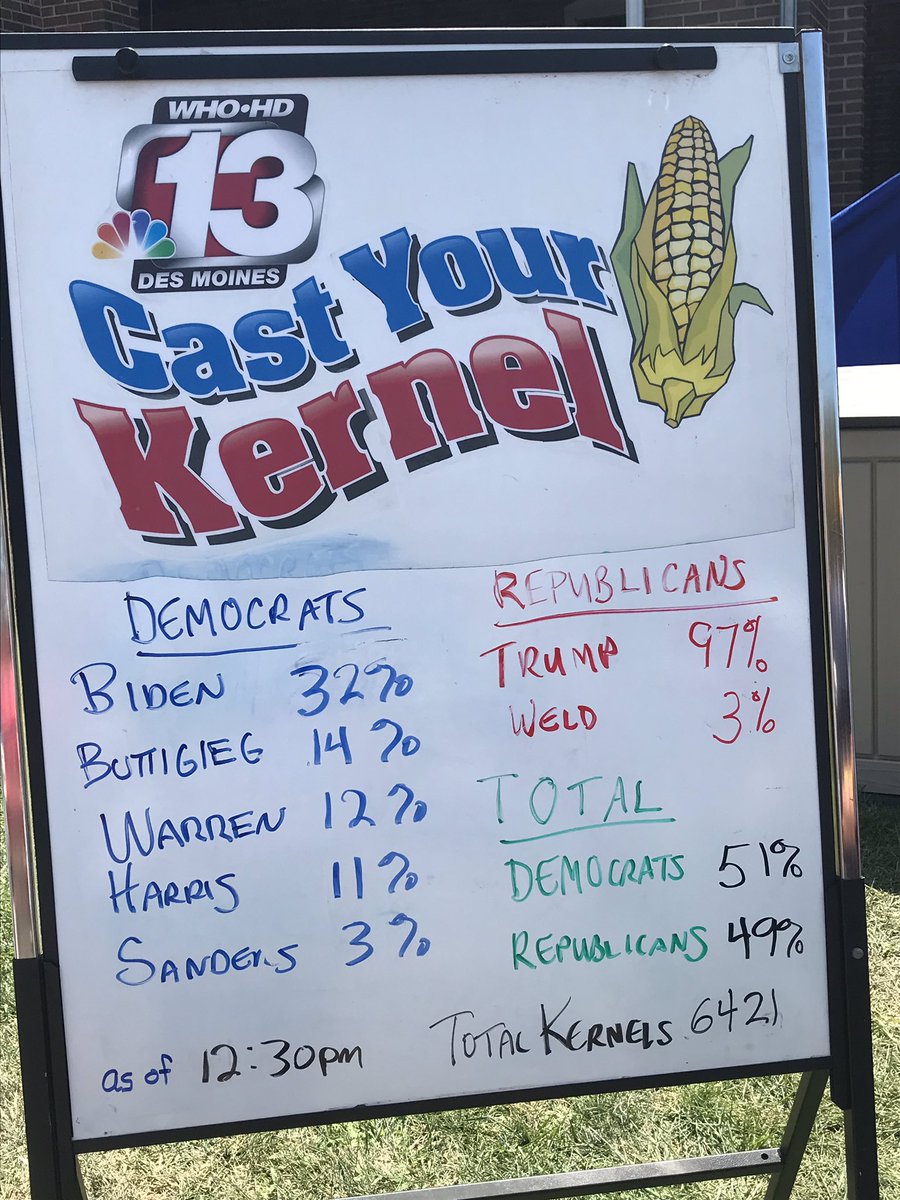 WHO•HD
13
DES MOINES
Cast Your
Kernel
DEMOCRATS
BIDEN 32%
BUTTIGIEG 14%
WARREN 12%
HARRIS 11%
SANDERS 3%
REPUBLICANS
TRUMP 97%
WELD 3%
TOTAL
DEMOCRATS 51%
REPUBLICANS 49%
as of 12:30pm
TOTAL KERNELS 6421